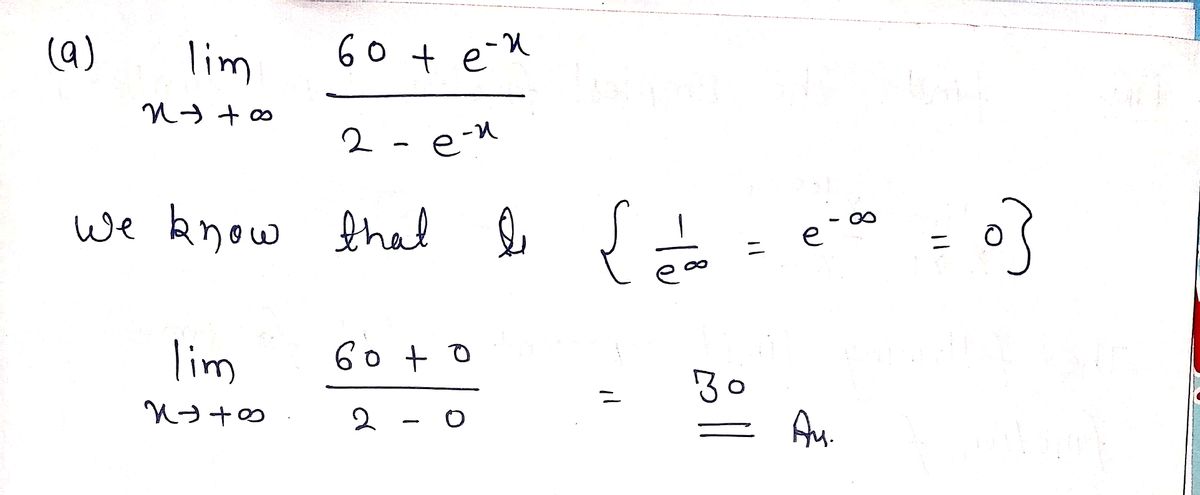 (a) lim x→+∞ (60 + e^-x) / (2 - e^-x)
We know that { 1/e^∞ = e^-∞ = 0}
lim x→+∞ (60 + 0) / (2 - 0) = 30 An.